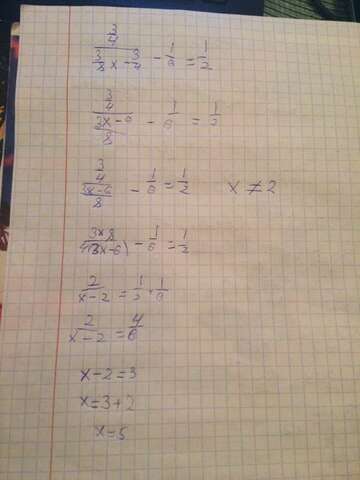 (3/4)/(3/8 x - 3/4) - 1/6 = 1/2
(3/4)/((3x-6)/8) - 1/6 = 1/2
(3/4)/((3x-6)/8) - 1/6 = 1/2 x ≠ 2
3×8/4(3x-6) - 1/6 = 1/2
2/(x-2) = 1/2 + 1/6
2/(x-2) = 4/6
x-2=3
x=3+2
x=5